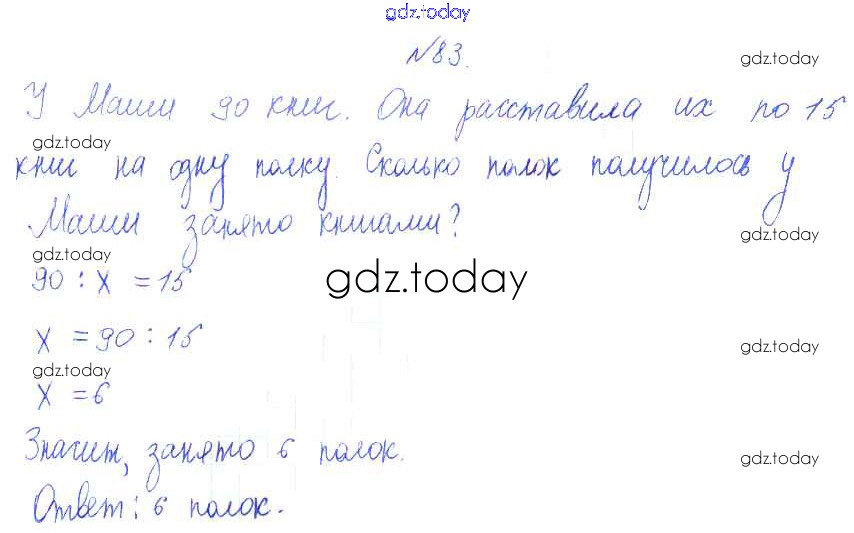 gdz.today
№83.
gdz.today
У Маши 90 книг. Она расставила их по 15
gdz.today
книг на одну полку. Сколько полок получилось у
Маши занято книгами?
gdz.today
gdz.today
90 : х = 15
gdz.today
х = 90 : 15
gdz.today
gdz.today
х = 6
Значит, занято 6 полок.
gdz.today
Ответ: 6 полок.